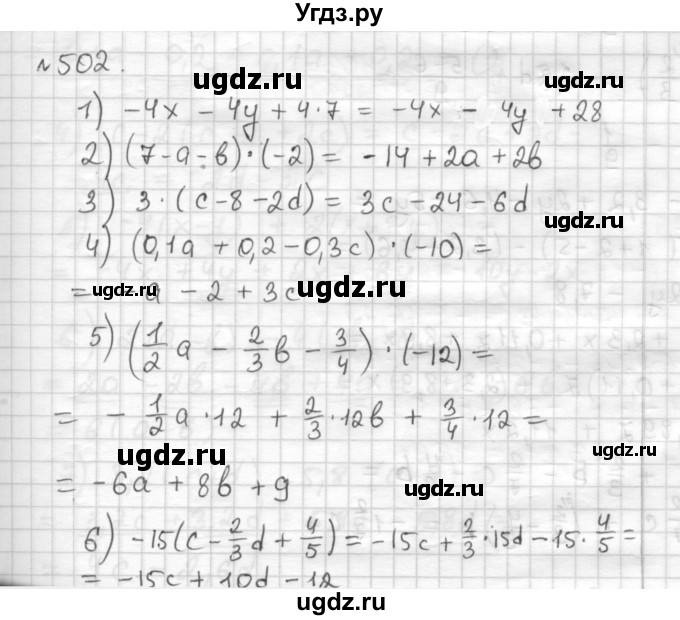 Угдз.ру
№502.
ugdz.ru
ugdz.ru
1) -4x - 4y + 4·7 = -4x - 4y + 28
2) (7-a-b)·(-2) = -14 + 2a + 2b
ugdz.ru
3) 3·(c-8-2d) = 3c-24-6d
ugdz.ru
4) (0,1a + 0,2 - 0,3c)·(-10) =
= a - 2 + 3c
ugdz.ru
ugdz.ru
5) (1/2 a - 2/3 b - 3/4)·(-12) =
= - 1/2 a·12 + 2/3·12b + 3/4·12 =
ugdz.ru
ugdz.ru
= -6a + 8b + 9
ugdz.ru
6) -15(c - 2/3 d + 4/5) = -15c + 2/3·15d - 15·4/5 =
= -15c + 10d - 12
ugdz.ru
ugdz.ru